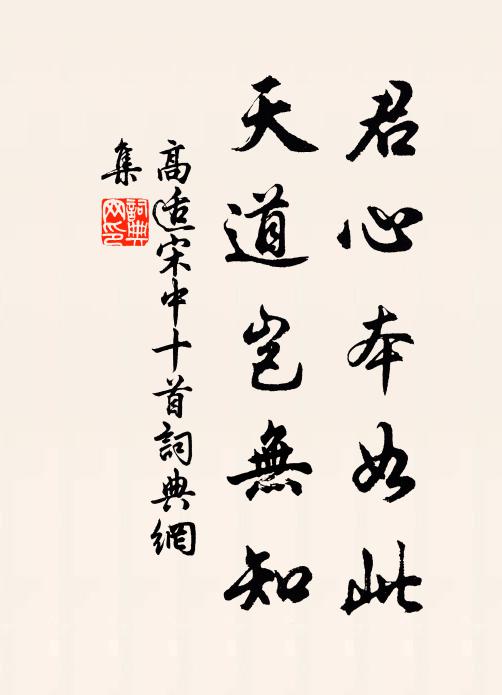 君心本如此
天道岂無知
高適宋中十首詞典網
集
詞典網印